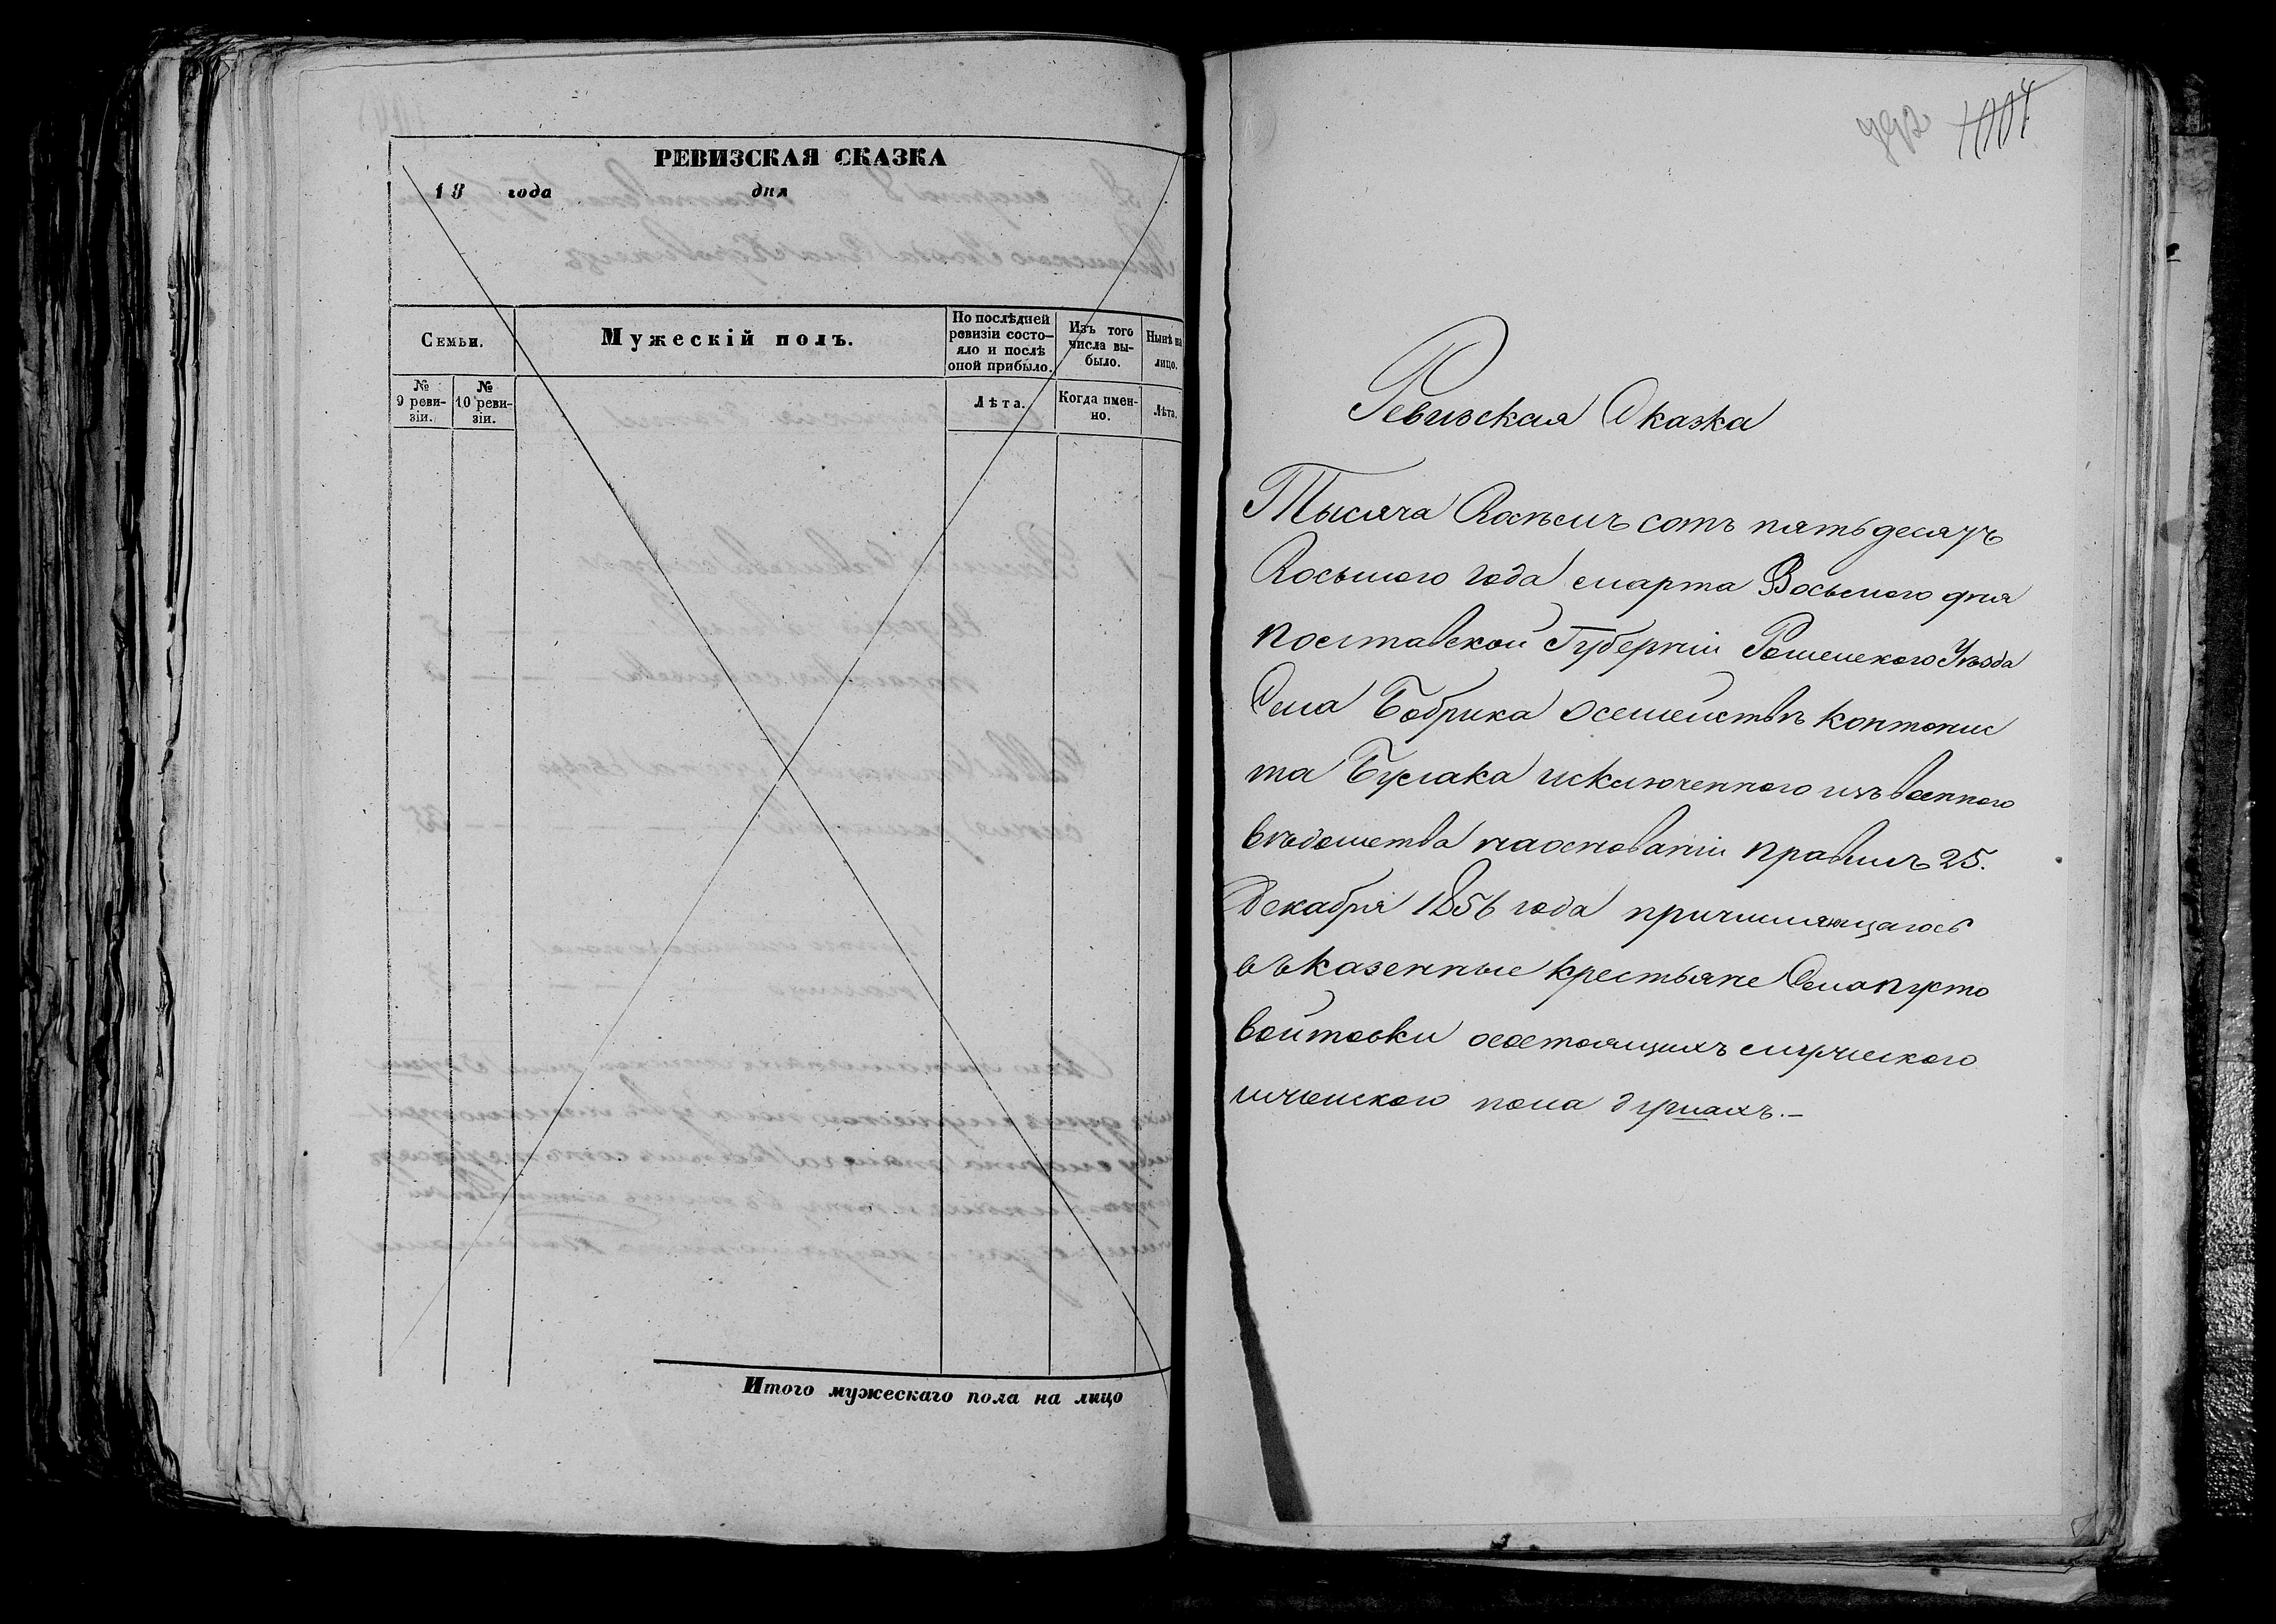 РЕВИЗСКАЯ СКАЗКА
18 года дня
Семьи.
Мужескій полъ.
По послѣдней ревизіи состояло и послѣ оной прибыло.
Изъ того числа выбыло.
Нынѣ на лицо.
№ 9 ревизіи.
№ 10 ревизіи.
Лѣта.
Когда именно.
Лѣта.
Итого мужескаго пола на лицо
1004
Ревизская Сказка
Тысяча Восѣмъ сотъ пятьдесятъ
Восьмого года марта Восьмого дня
полтавской Губерніи Роменского Уѣзда
Села Бобрика осемействѣ контонис
та Буслака исключенного изъ военного
вѣдомства наоснованіи правилъ 25.
Декабря 1856 года причисляющагось
въ казенные крестьяне Села пусто
войтовки осостоящихъ мужеского
ижѣнского пола душахъ.—